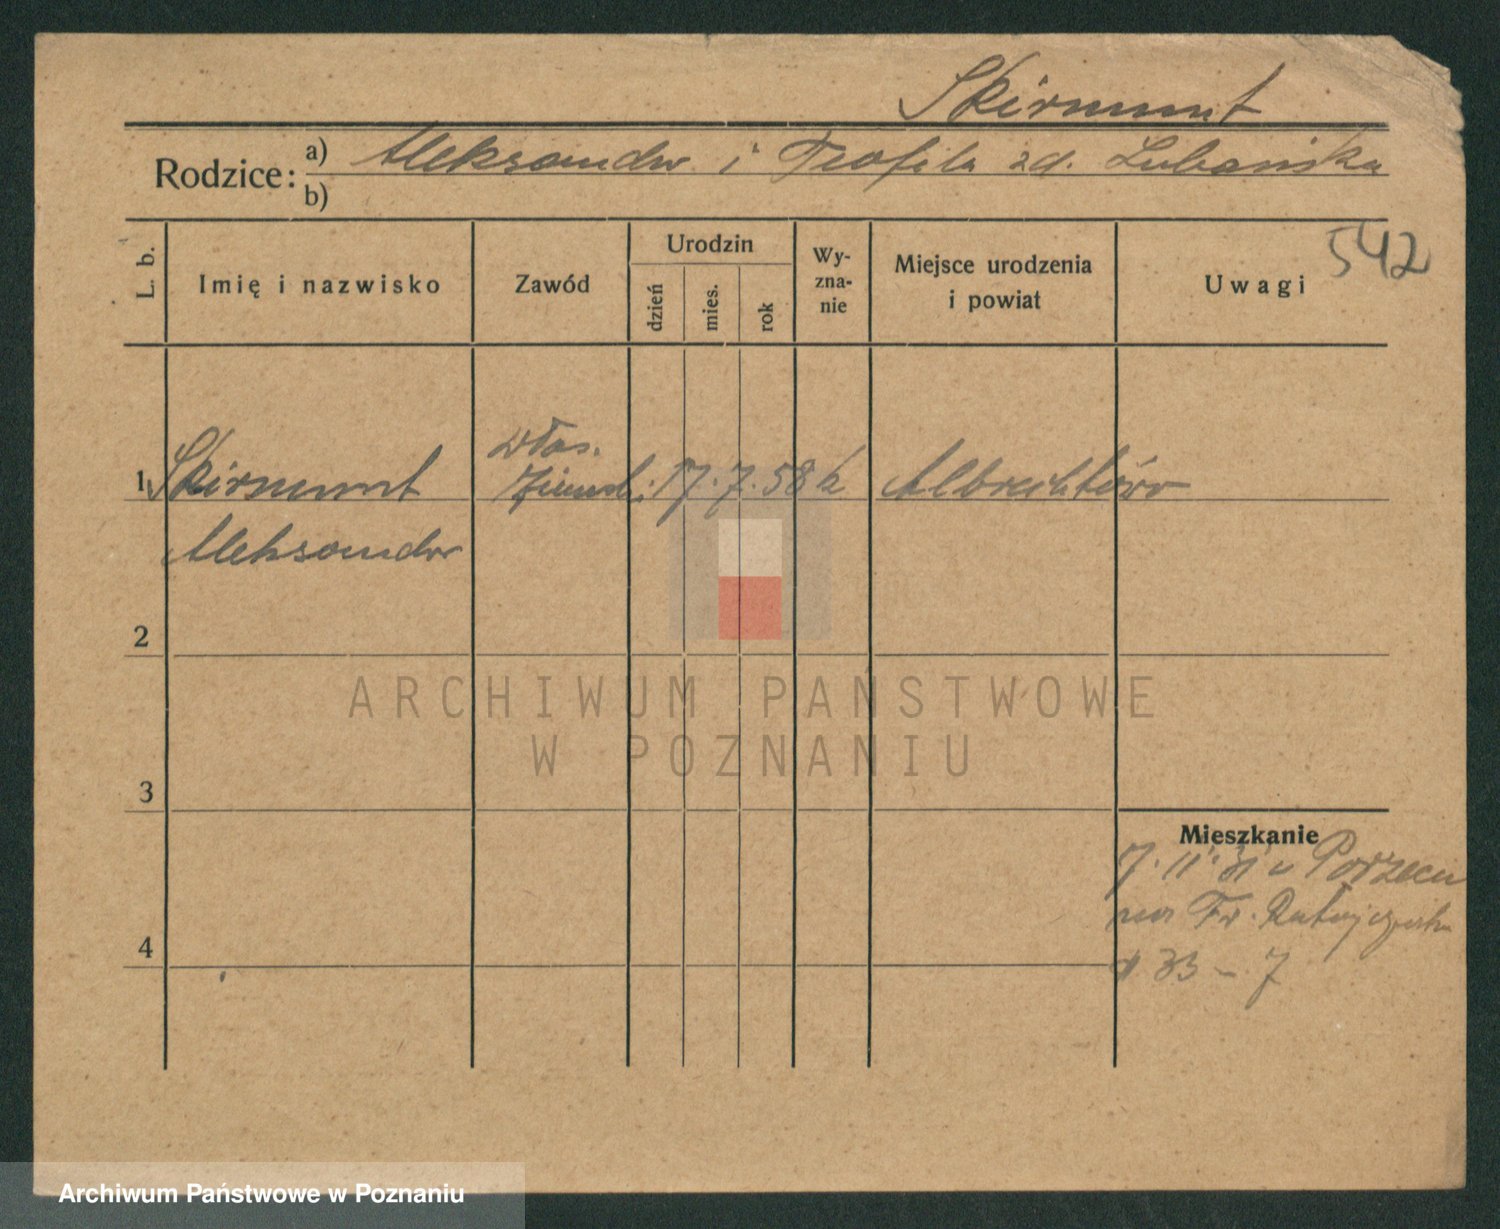 Skirmunt
Rodzice: a) Aleksander i Teofila zd. Lubańska
b)
542
L. b.
Imię i nazwisko
Zawód
Urodzin
dzień
mies.
rok
Wy-
zna-
nie
Miejsce urodzenia
i powiat
Uwagi
włas.
1 Skirmunt ziemski 17. 7. 58 k Albrechtów
Aleksander
2
ARCHIWUM PAŃSTWOWE
W POZNANIU
3
Mieszkanie
7. 11. 31 u Porzecu
Fr. Ratajczaka
33 – 7
4
Archiwum Państwowe w Poznaniu